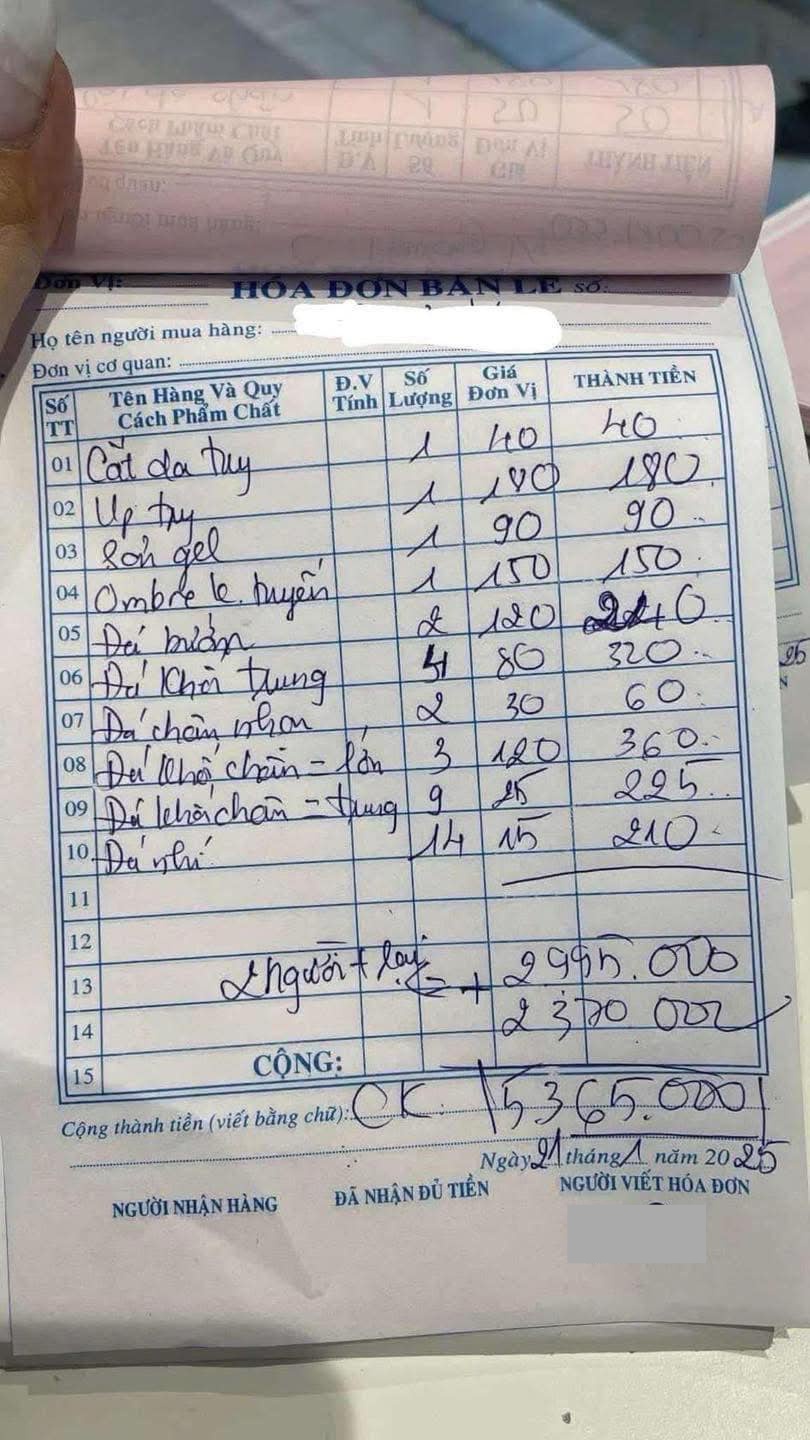 Đơn Vị:
HÓA ĐƠN BÁN LẺ Số:
Họ tên người mua hàng:
Đơn vị cơ quan:
Số TT Tên Hàng Và Quy Cách Phẩm Chất Đ.V Tính Số Lượng Giá Đơn Vị THÀNH TIỀN
01 Cắt da tay 1 40 40
02 Up tay 1 180 180
03 Sơn gel 1 90 90
04 Ombre 1 150 150
05 Đá 2 120 240
06 Đá khối trung 4 80 320
07 Đá chân nhọn 2 30 60
08 Đá khối chân = lớn 3 120 360
09 Đá khối chân = trung 9 25 225
10 Đá nhí 14 15 210
11
12
13 2 người + lại = + 2995.000
14 2370 000
15 CỘNG:
Cộng thành tiền (viết bằng chữ): CK 5365.000
Ngày 21 tháng 1 năm 2025
NGƯỜI NHẬN HÀNG ĐÃ NHẬN ĐỦ TIỀN NGƯỜI VIẾT HÓA ĐƠN